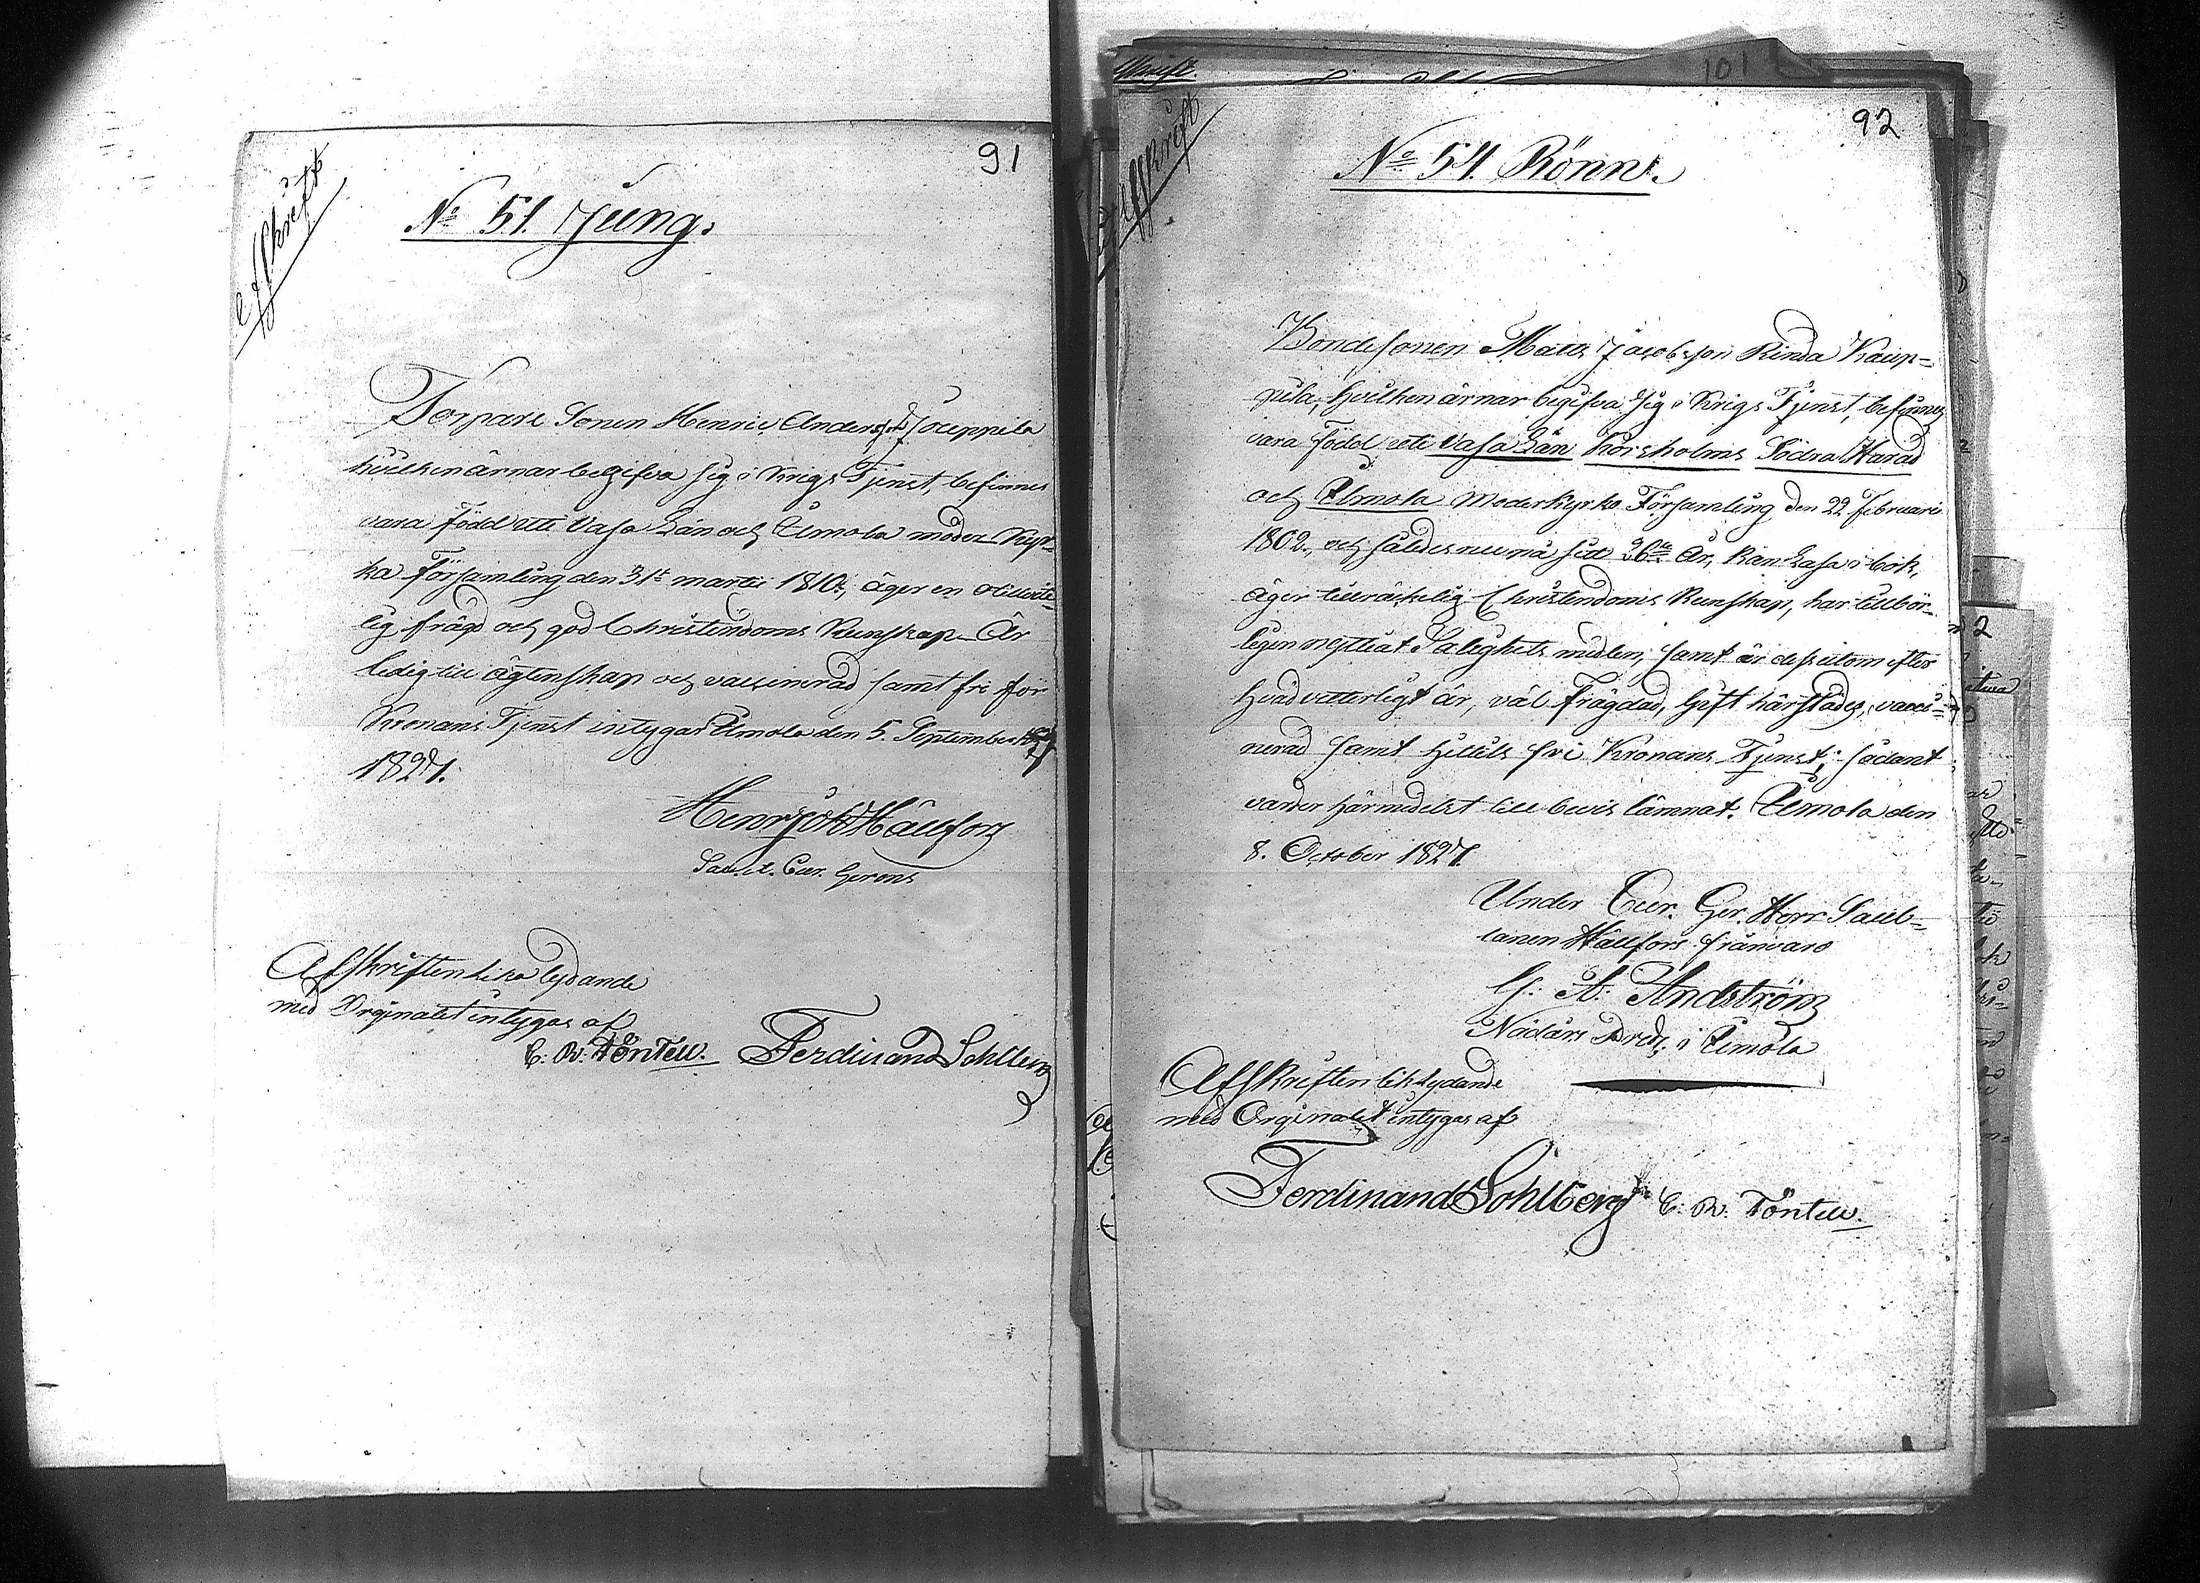 91
Afskrift
No 51. Jung.
Torpare Sonen Henric Andersson Jouppila
hvilken ärnar begifva sig i Krigs Tjenst, befinnes
vara född uti Vasa Län och Ilmola moder Kyr-
ka Församling den 31st martii 1810., äger en otillvite-
lig frägd och god Christendoms Kunskap. Är
ledig till ägtenskap och vaccinerad samt fri för
Kronans Tjenst intygar Ilmola den 5. September
1827.
Henr Joh Hällfors
Sac. et. Cur. Gerens
Afskriftens lika lydande
med Orginalet intygas af
E: W: Töntell. Ferdinand Sohlberg
101
92
Afskrift
No 54. Rönn.
Bondesonen Matts Jacobsson Rinda Kaup-
pila, hvilken ärnar begifva sig i Krigs Tjenst, befinnes
vara Född uti Vasa Län Korsholms Södra Härad
och Ilmola Moderkyrko Församling den 22 Februarii
1802., och således nu på sitt 26te År, kan läsa i bok,
äger tillräckelig Christendoms Kunskap, har tillbör-
ligen nyttiat Salighets medlen, samt är dessutom efter
hvad vetterligt är, väl frägdad, Gift härstädes, vacci-
nerad samt hittils fri Kronans Tjenst; sådant
varder härmedelst till bevis lämnat. Ilmola den
8. October 1827.
Under Cur. Ger. Herr Sacel-
lanen Hällfors frånvaro
G: A: Andström
Nådårs Pred: i Ilmola
Afskriftens lik lydande
med Orginalet intygas af
Ferdinand Sohlberg E: W: Töntell.